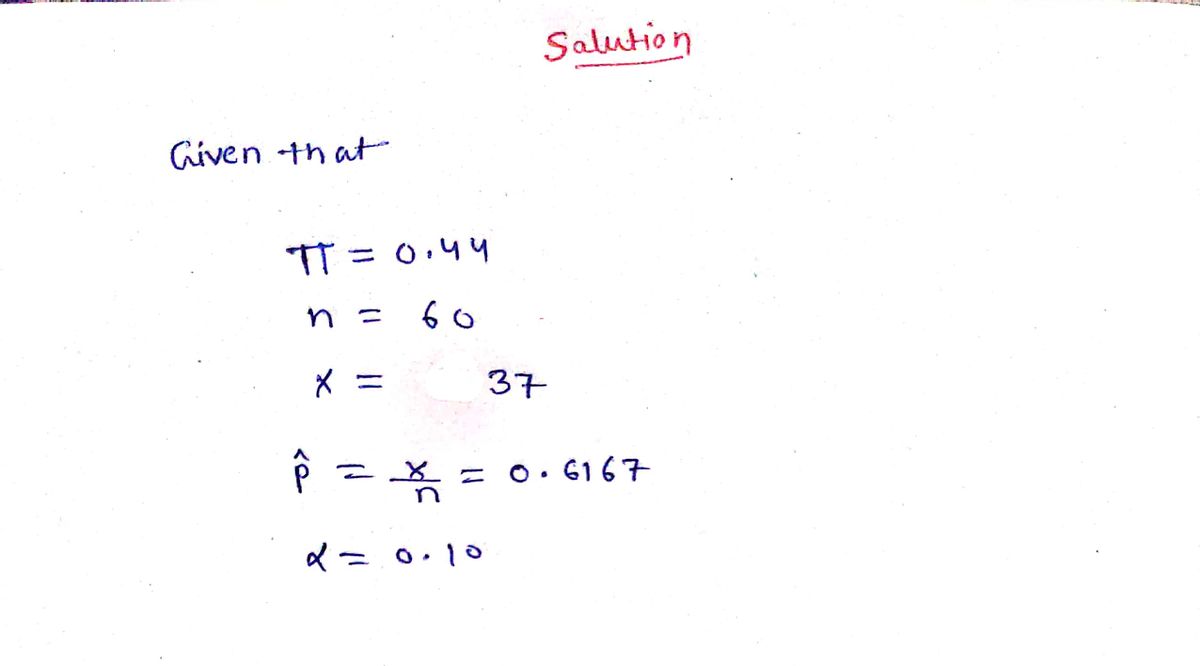 Salution
Given that
π = 0.44
n = 60
x = 37
p̂ = x/n = 0.6167
α = 0.10